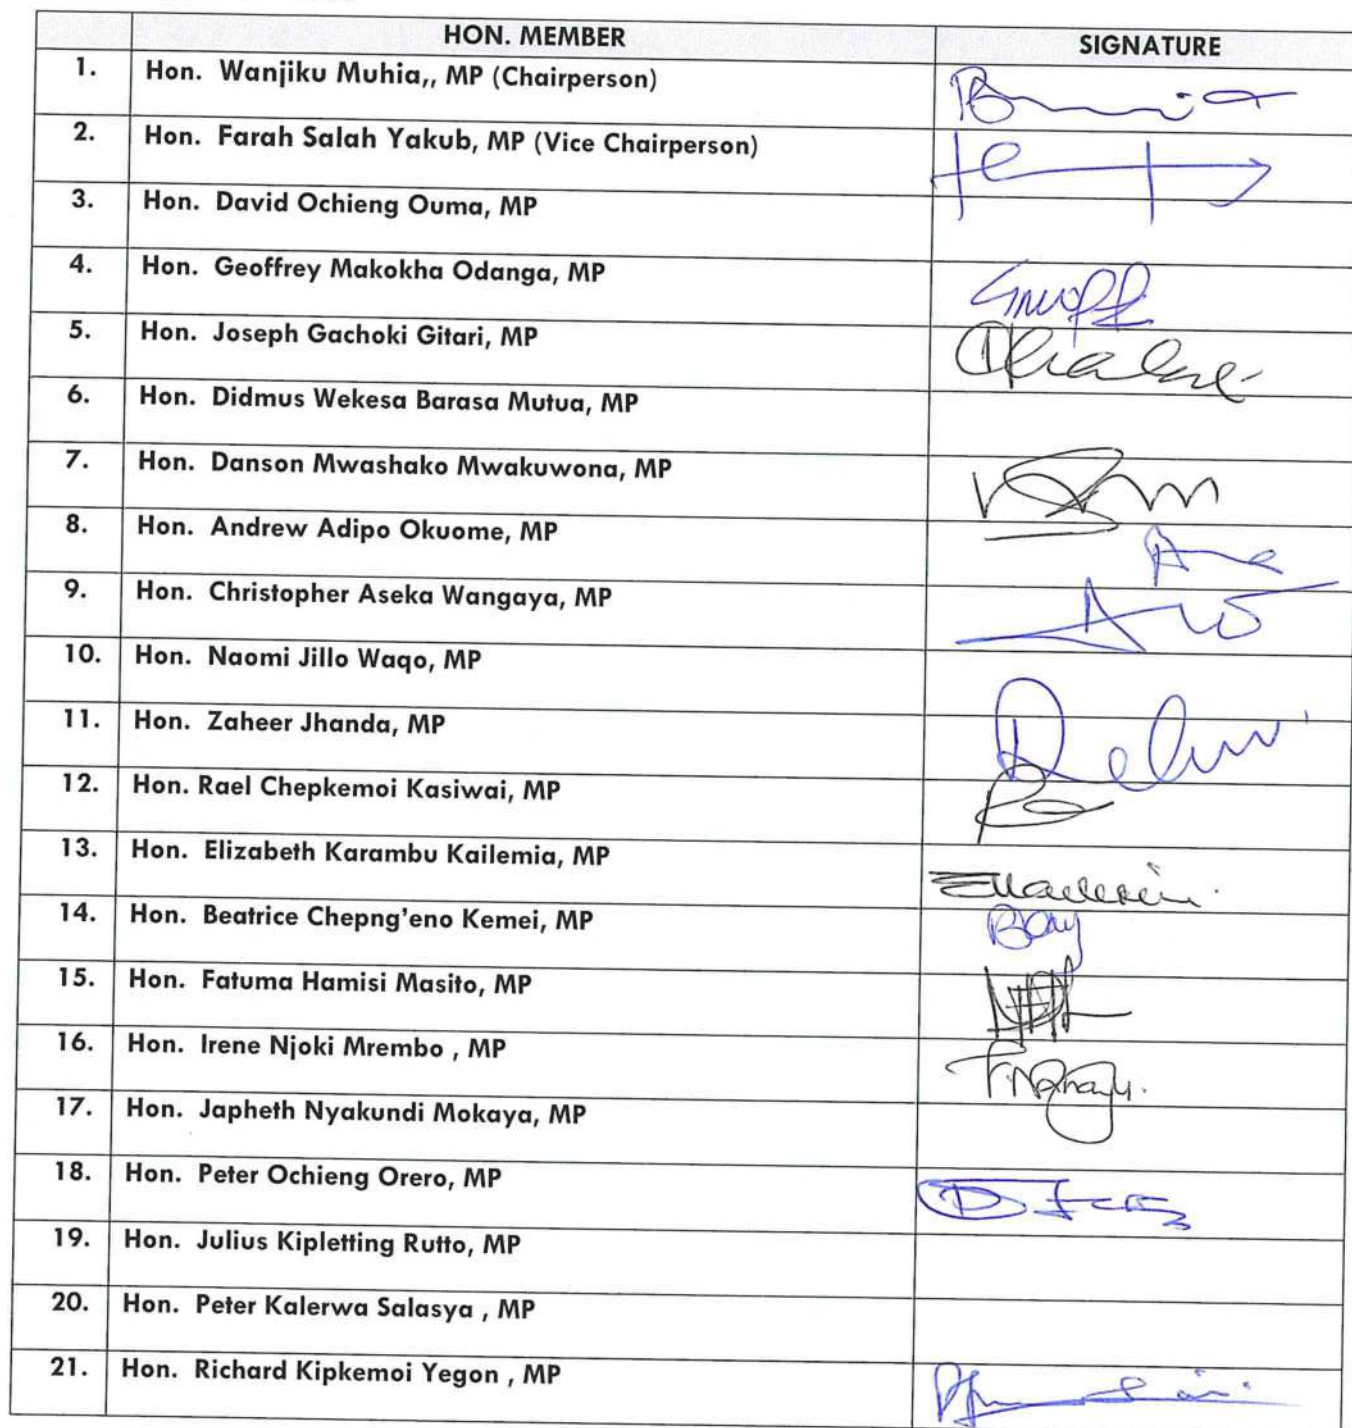 HON. MEMBER SIGNATURE
1. Hon. Wanjiku Muhia,, MP (Chairperson)
2. Hon. Farah Salah Yakub, MP (Vice Chairperson)
3. Hon. David Ochieng Ouma, MP
4. Hon. Geoffrey Makokha Odanga, MP
5. Hon. Joseph Gachoki Gitari, MP
6. Hon. Didmus Wekesa Barasa Mutua, MP
7. Hon. Danson Mwashako Mwakuwona, MP
8. Hon. Andrew Adipo Okuome, MP
9. Hon. Christopher Aseka Wangaya, MP
10. Hon. Naomi Jillo Waqo, MP
11. Hon. Zaheer Jhanda, MP
12. Hon. Rael Chepkemoi Kasiwai, MP
13. Hon. Elizabeth Karambu Kailemia, MP
14. Hon. Beatrice Chepng'eno Kemei, MP
15. Hon. Fatuma Hamisi Masito, MP
16. Hon. Irene Njoki Mrembo , MP
17. Hon. Japheth Nyakundi Mokaya, MP
18. Hon. Peter Ochieng Orero, MP
19. Hon. Julius Kipletting Rutto, MP
20. Hon. Peter Kalerwa Salasya , MP
21. Hon. Richard Kipkemoi Yegon , MP